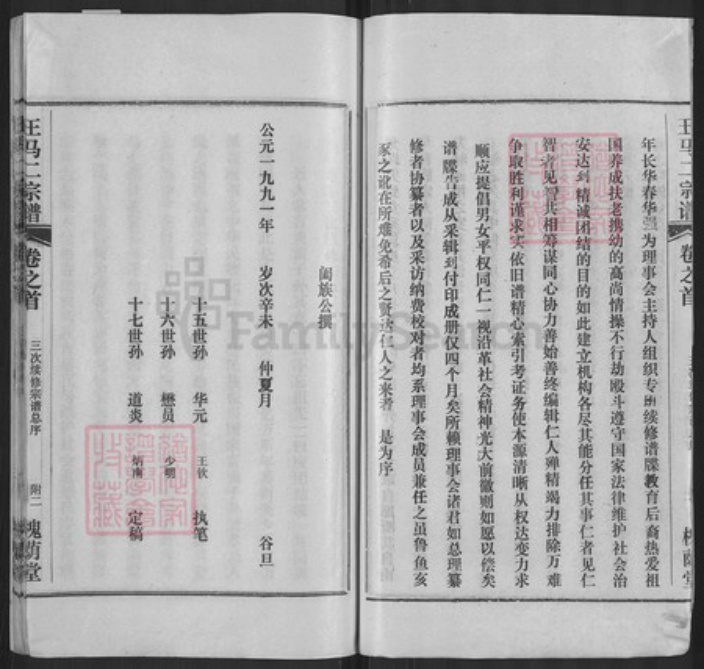 王马二宗谱
卷之首
年长华春华强为理事会主持人组织专班续修谱牒教育后裔热爱祖
国养成扶老携幼的高尚情操不行劫殴斗遵守国家法律维护社会治
安达到精诚团结的目的如此建立机构各尽其能分任其事仁者见仁
智者见智共相筹谋同心协力善始善终编辑仁人殚精竭力排除万难
争取胜利谨求实依旧谱精心索引考证务使本源清晰从权达变力求
顺应提倡男女平权同仁一视沿革社会精神光大前徽则如愿以偿矣
谱牒告成从采辑到付印成册仅四个月矣所赖理事会诸君如总理纂
修者协纂者以及采访纳费校对者均系理事会成员兼任之虽鲁鱼亥
豕之讹在所难免希后之贤达仁人之来者 是为序
阖族公撰
公元一九九一年 岁次辛未 仲夏月 谷旦
十五世孙 华元 王钦 执笔
十六世孙 懋员 少明
十七世孙 道炎 炳南 定稿
王马二宗谱
卷之首
三次续修宗谱总序
附二
槐荫堂
FamilySearch